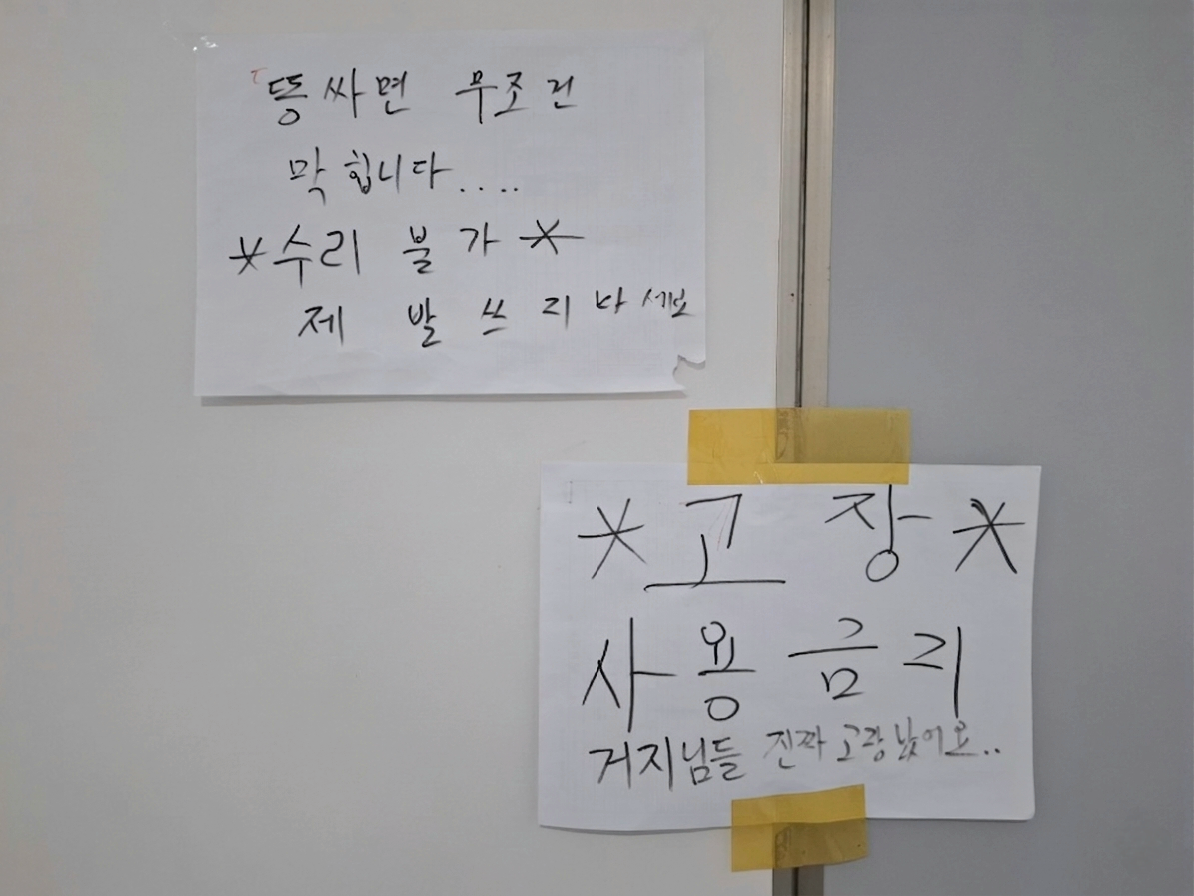 똥 싸면 무조건
막힙니다....
*수리 불가*
제 발 쓰 지 마 세요
*고 장*
사용금지
거지님들 진짜 고장났어요..